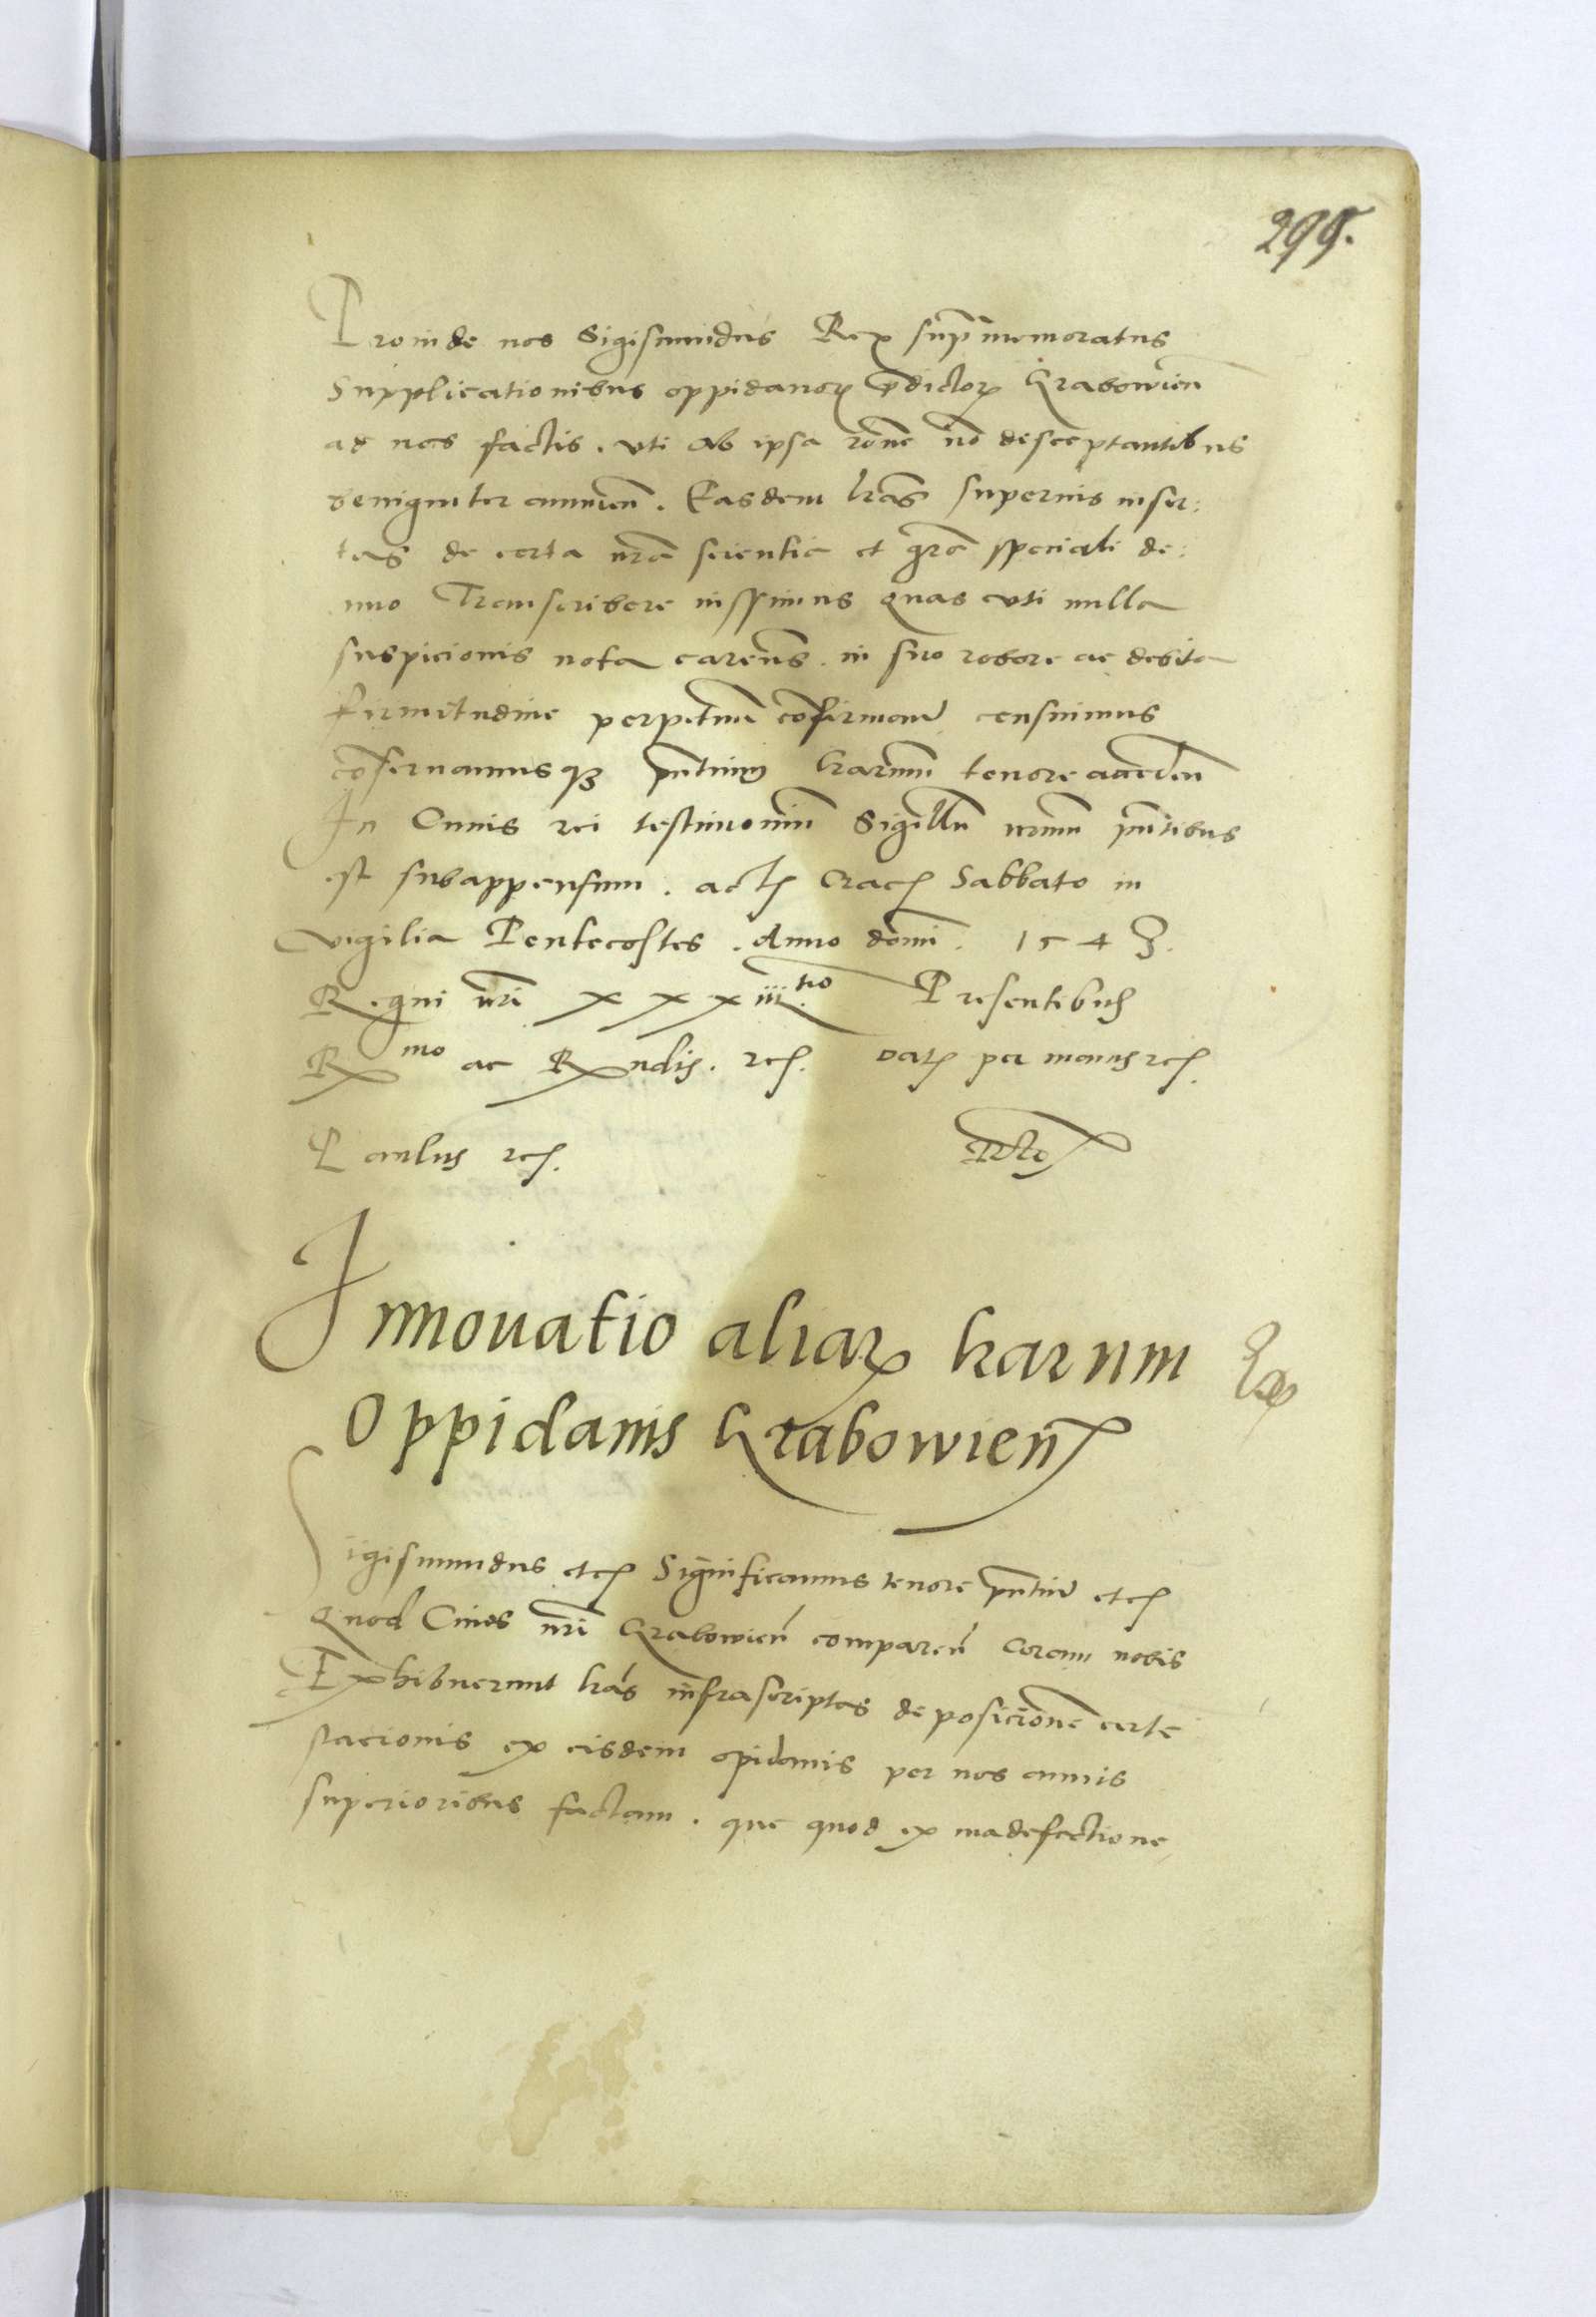 299.
Proinde nos Sigismundus Rex supmemoratus
Supplicationibus oppidanoꝝ pdictoꝝ Grabowien
ad nos factis. uti ab ipsa rone no desceptantibus
benigniter annuen. Easdem lras supernis inser:
tas de certa nra scientia et gra speciali de:
nuo Transcribere iussimus quas uti nulla
suspicionis nota carens. in suo robore ac debita
firmitudine perpetuum confirmand censuimus
confirmamusqꝫ pntium lrarum tenore median
In Cuius rei testimonium Sigillum nrum pntibus
est subappensum. act Crac Sabbato in
vigilia Pentecostes. Anno domi. 1543.
Regni nri xxxiii tio Presentibus
R mo ac Rndis. etc. Dat per manus etc.
Paulus etc.
Innouatio aliaꝝ lrarum
Oppidanis Grabowien
Sigismundus etc Significamus tenore pntium etc
Quod Ciues nri Grabowien comparen coram nobis
Exhibuerunt lras infrascriptas deposicionem certe
stacionis ex eisdem opidanis per nos annis
superioribus factam. que quod ex madefactione